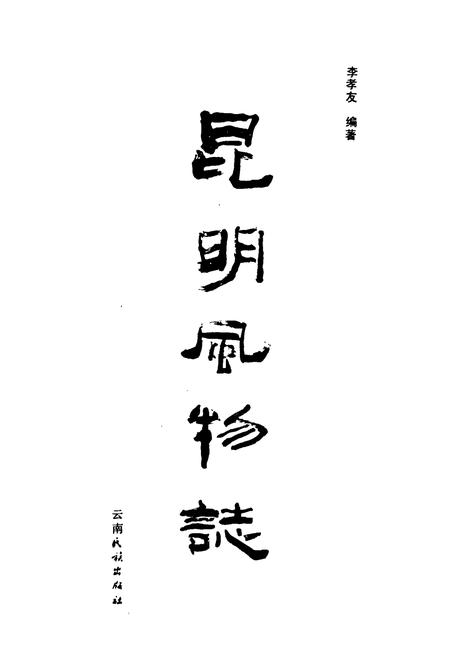 李孝友 编著
昆明风物誌
云南民族出版社